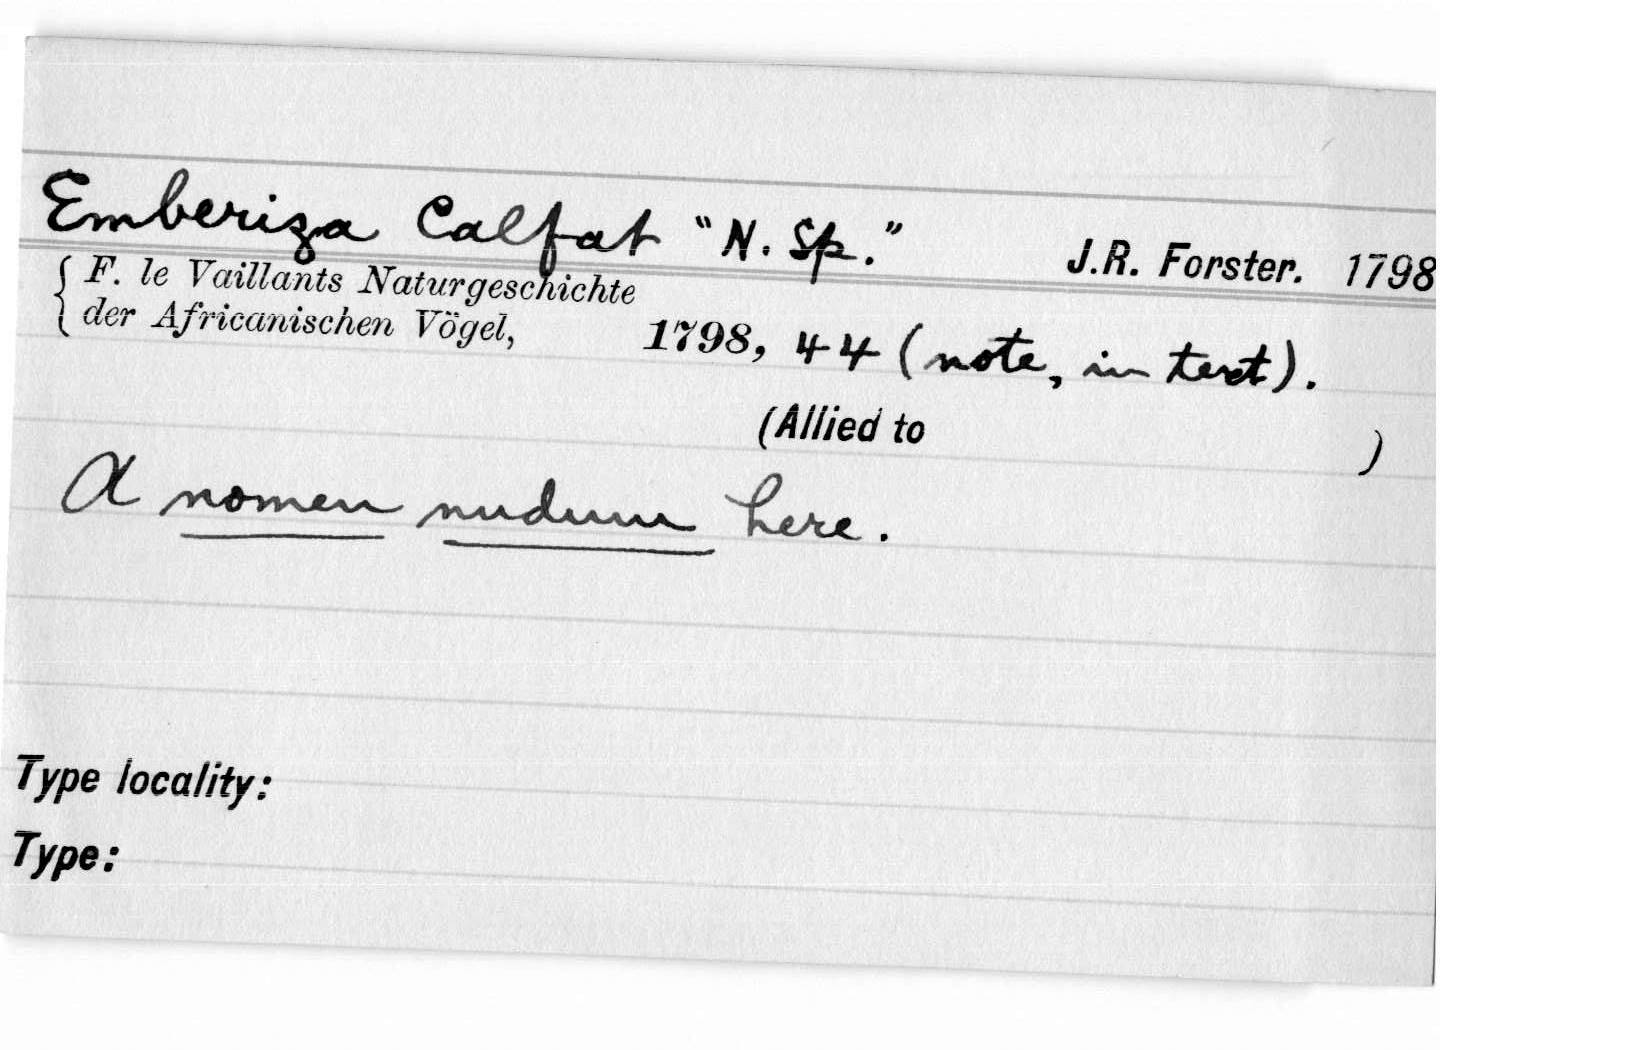 Emberiza Calfat "N. Sp." J.R. Forster. 1798
F. le Vaillants Naturgeschichte
der Africanischen Vögel, 1798, 44 (note, in text).
(Allied to )
A nomen nudum here.
Type locality:
Type: